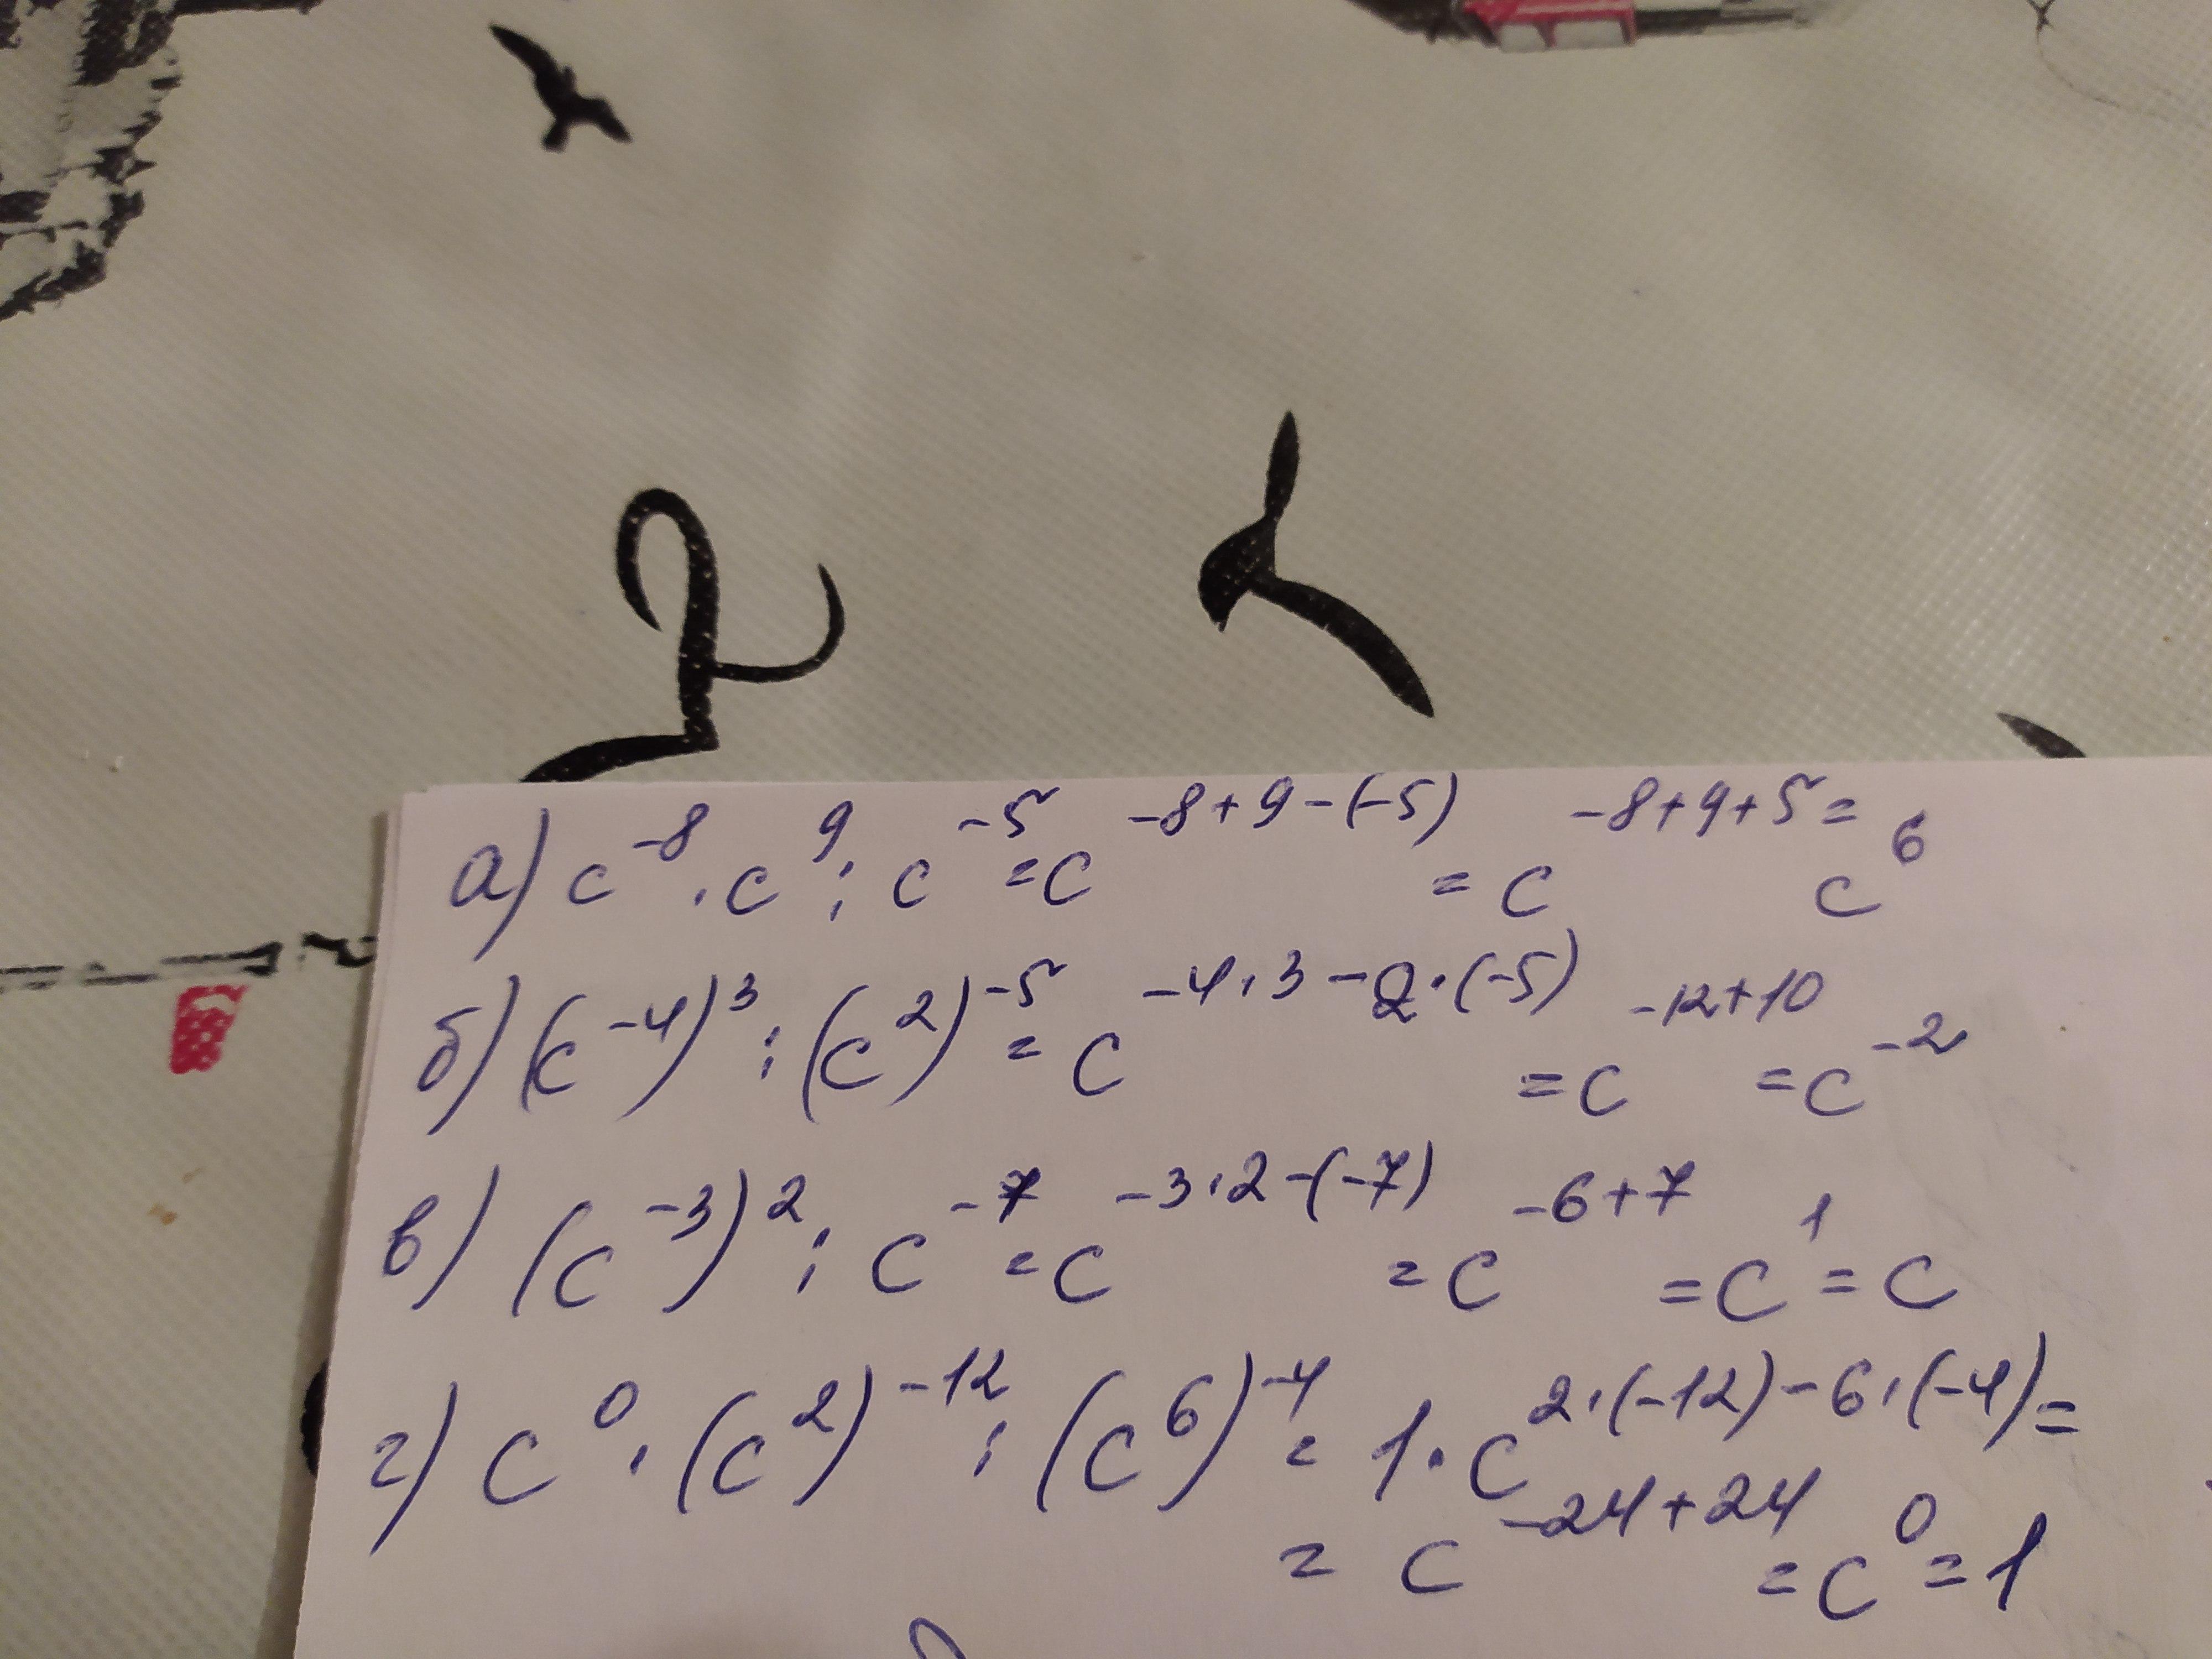 а) c⁻⁸ · c⁹ : c⁻⁵ = c⁻⁸⁺⁹⁻⁽⁻⁵⁾ = c⁻⁸⁺⁹⁺⁵ = c⁶
б) (c⁻⁴)³ : (c²)⁻⁵ = c⁻⁴·³⁻²·⁽⁻⁵⁾ = c⁻¹²⁺¹⁰ = c⁻²
в) (c⁻³)² : c⁻⁷ = c⁻³·²⁻⁽⁻⁷⁾ = c⁻⁶⁺⁷ = c¹ = c
г) c⁰ · (c²)⁻¹² : (c⁶)⁻⁴ = 1 · c²·⁽⁻¹²⁾⁻⁶·⁽⁻⁴⁾ =
= c⁻²⁴⁺²⁴ = c⁰ = 1